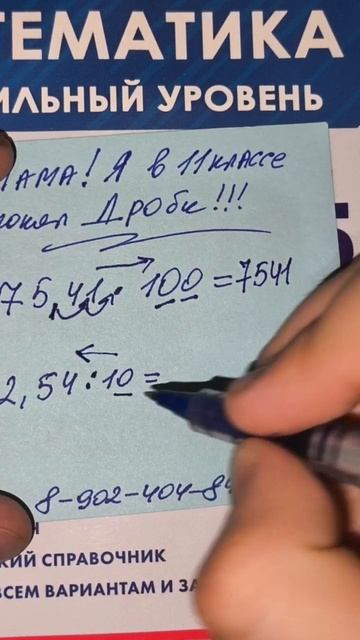 ТЕМАТИКА
ИЛЬНЫЙ УРОВЕНЬ
МАМА! Я В 11 КЛАССЕ
понял ДРОБИ!!!
75,41 · 100 = 7541
2,54 : 10 =
8-902-404-84
КИЙ СПРАВОЧНИК
ВСЕМ ВАРИАНТАМ И ЗА